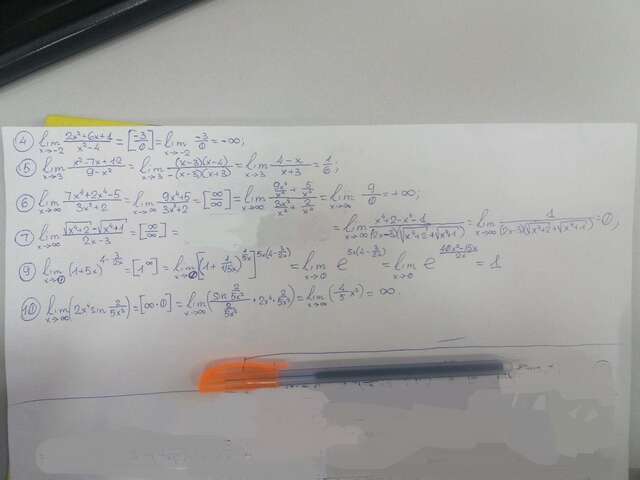 ④ lim x→-2 (2x²+6x+1)/(x²-4) = [-3/0] = lim x→-2 -3/0 = -∞;
⑤ lim x→3 (x²-7x+12)/(9-x²) = lim x→3 (x-3)(x-4)/(-(x-3)(x+3)) = lim x→3 (4-x)/(x+3) = 1/6;
⑥ lim x→∞ (7x⁴+2x⁴-5)/(3x²+2) = lim x→∞ (9x⁴+5)/(3x²+2) = [∞/∞] = lim x→∞ = lim x→∞ 9/0 = +∞;
⑦ lim x→∞ (√(x²+2)-√(x²+1))/(2x-3) = [∞/∞] = = lim x→∞ (x²+2-x²-1)/((2x-3)(√(x²+2)+√(x²+1))) = lim x→∞ 1/((2x-3)(√(x²+2)+√(x²+1))) = 0;
⑨ lim x→0 (1+5x)^(4-3/2x) = [1^∞] = lim x→0 = lim x→0 e = lim x→0 e = 1
⑩ lim x→∞ (2x⁴ sin 2/5x²) = [∞·0] = lim x→∞ (sin 2/5x² / 2/5x² · 2x⁴ · 2/5x²) = lim x→∞ (4/5 x²) = ∞.